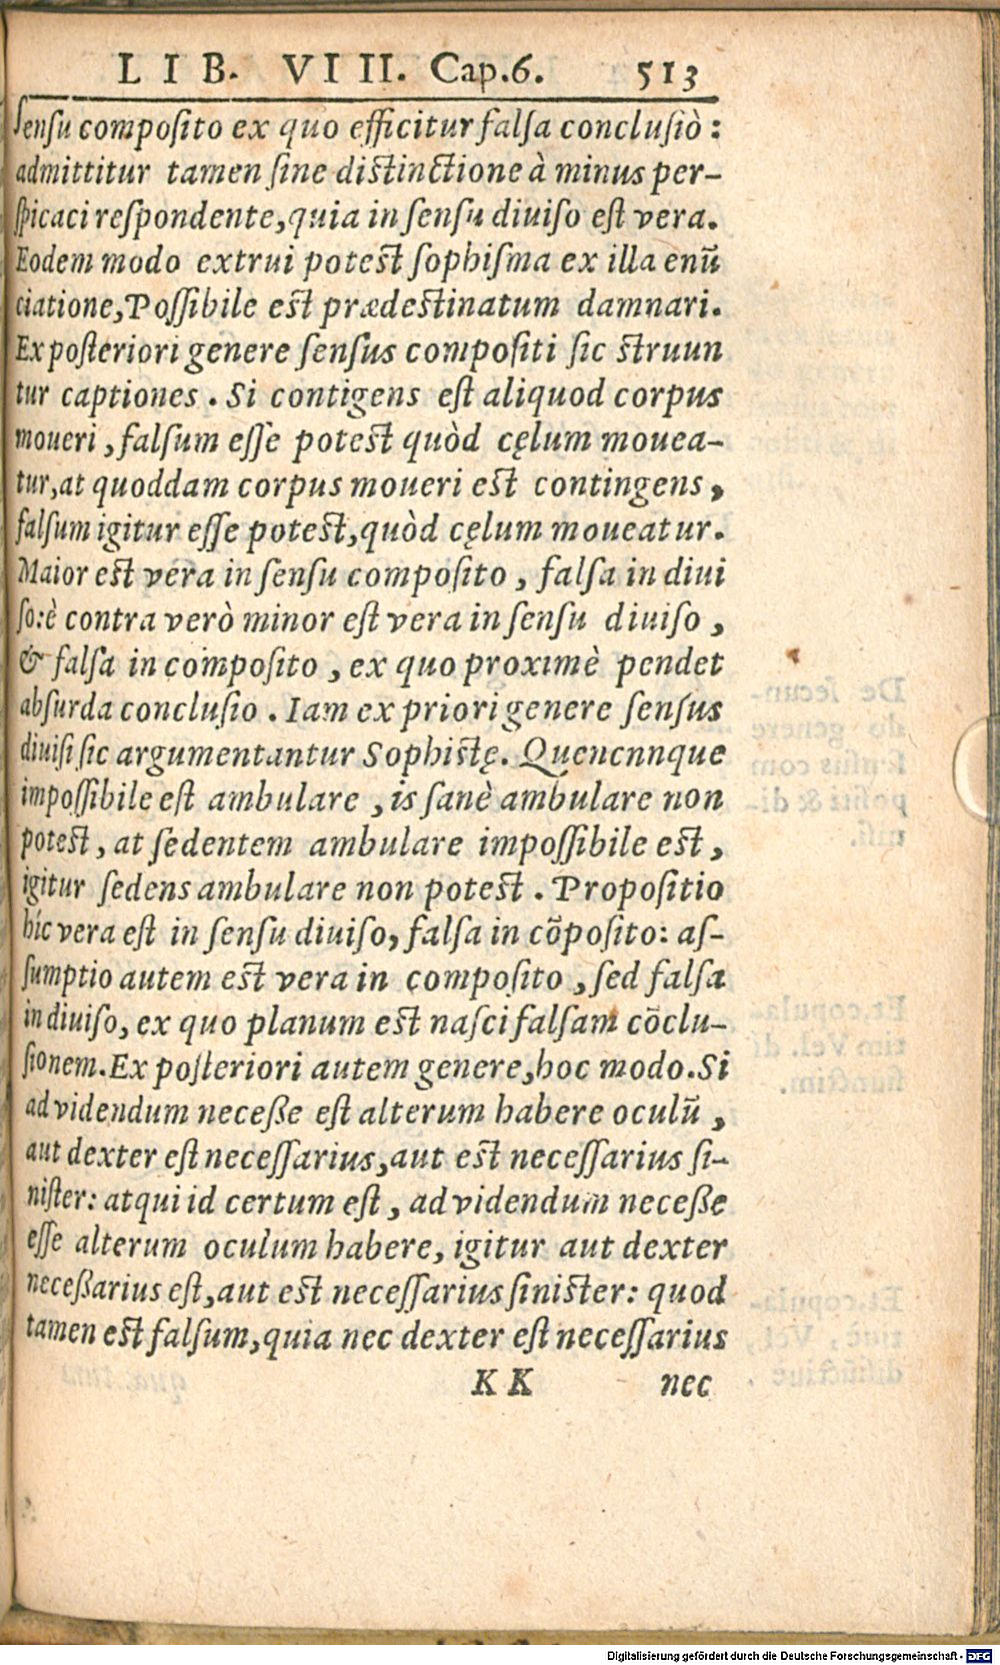 LIB. VIII. Cap.6. 513
sensu composito ex quo efficitur falsa conclusiò:
admittitur tamen sine distinctione à minus per-
spicaci respondente, quia in sensu diuiso est vera.
Eodem modo extrui potest sophisma ex illa enũ
ciatione, Possibile est prædestinatum damnari.
Ex posteriori genere sensus compositi sic struun
tur captiones. Si contigens est aliquod corpus
moueri, falsum esse potest quòd cęlum mouea-
tur, at quoddam corpus moueri est contingens,
falsum igitur esse potest, quòd cęlum moueatur.
Maior est vera in sensu composito, falsa in diui
so: è contra verò minor est vera in sensu diuiso,
& falsa in composito, ex quo proximè pendet
absurda conclusio. Iam ex priori genere sensus
diuisi sic argumentantur Sophistę. Quencnnque
impossibile est ambulare, is sanè ambulare non
potest, at sedentem ambulare impossibile est,
igitur sedens ambulare non potest. Propositio
hic vera est in sensu diuiso, falsa in cõposito: as-
sumptio autem est vera in composito, sed falsa
in diuiso, ex quo planum est nasci falsam cõclu-
sionem. Ex posteriori autem genere, hoc modo. Si
ad videndum neceße est alterum habere oculũ,
aut dexter est necessarius, aut est necessarius si-
nister: atqui id certum est, ad videndum neceße
esse alterum oculum habere, igitur aut dexter
neceßarius est, aut est necessarius sinister: quod
tamen est falsum, quia nec dexter est necessarius
KK nec
Digitalisierung gefördert durch die Deutsche Forschungsgemeinschaft - DFG